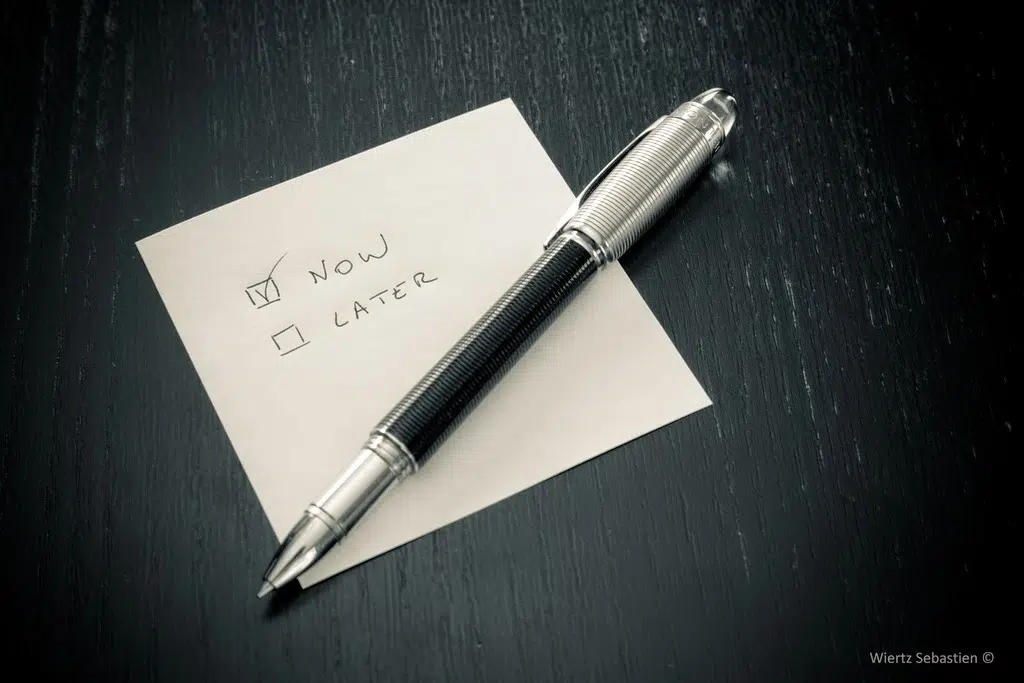 NOW
LATER
Wiertz Sebastien ©